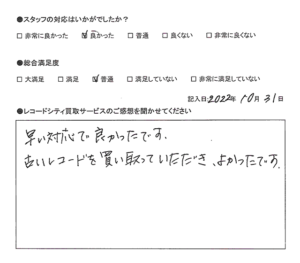 ●スタッフの対応はいかがでしたか?
□ 非常に良かった ☑ 良かった □ 普通 □ 良くない □ 非常に良くない
●総合満足度
□ 大満足 □ 満足 ☑ 普通 □ 満足していない □ 非常に満足していない
記入日:2022年10月31日
●レコードシティ買取サービスのご感想を聞かせてください
早い対応で良かったです。
古いレコードを買い取っていただき、よかったです。